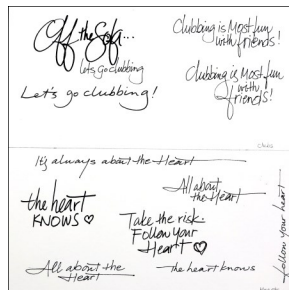 Off the Sofa...
let's Go clubbing
Let's go clubbing!
Clubbing is Most fun
with friends!
Clubbing is Most fun
with
friends!
It's always about the Heart
the heart
KNOWS ♡
All about
the Heart
Take the risk.
Follow your
Heart ♡
All about the
Heart
The heart knows
follow your heart